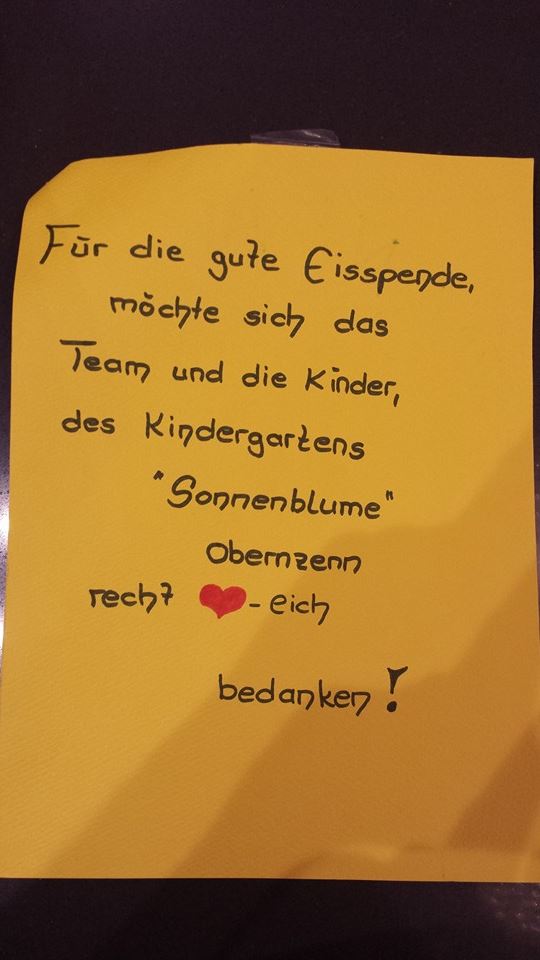 Für die gute Eisspende,
möchte sich das
Team und die Kinder,
des Kindergartens
"Sonnenblume"
Obernzenn
recht ❤-eich
bedanken!